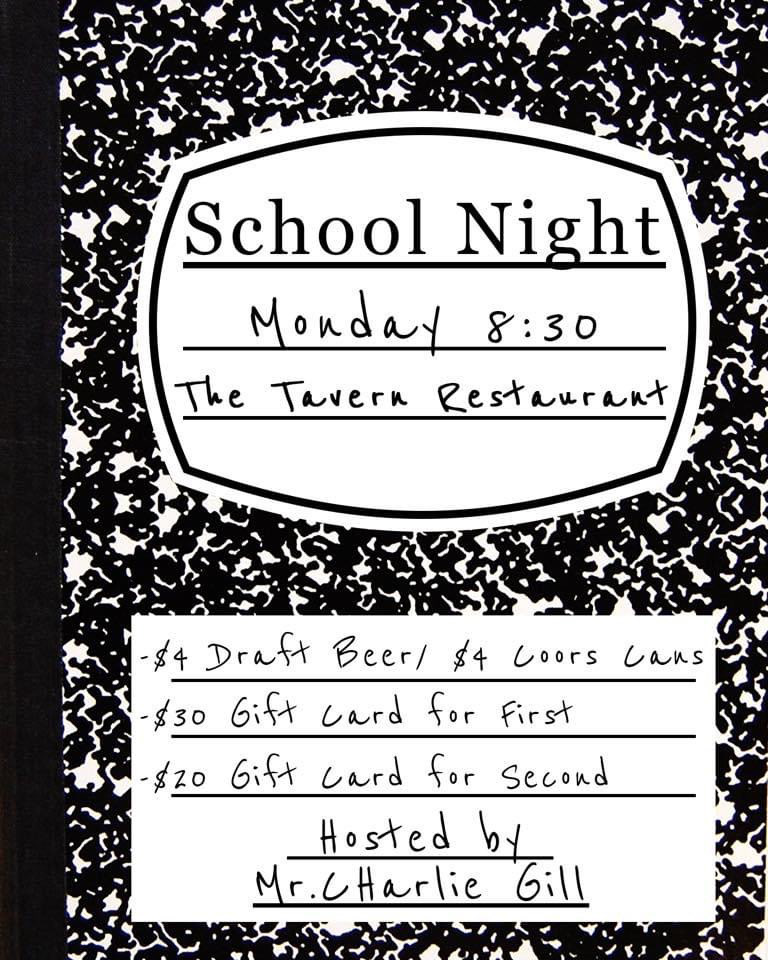 School Night
Monday 8:30
The Tavern Restaurant
-$4 Draft Beer/ $4 Coors Cans
-$30 Gift Card for First
-$20 Gift Card for Second
Hosted by
Mr.CHarlie Gill